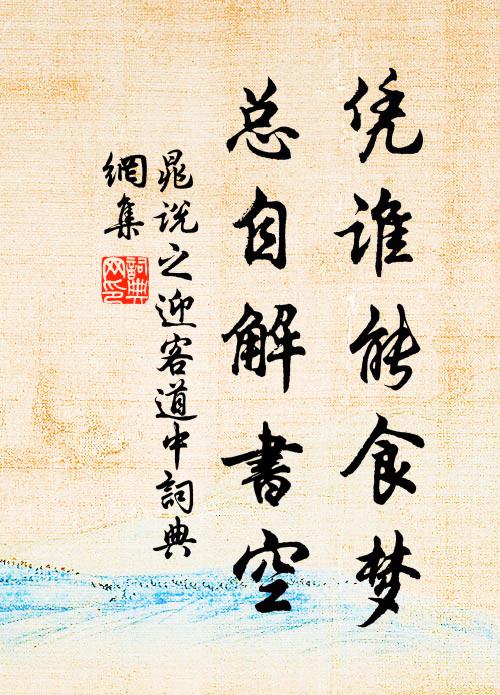 凭谁能食梦
总自解書空
晁说之迎客道中詞典
網集
詞典
网印